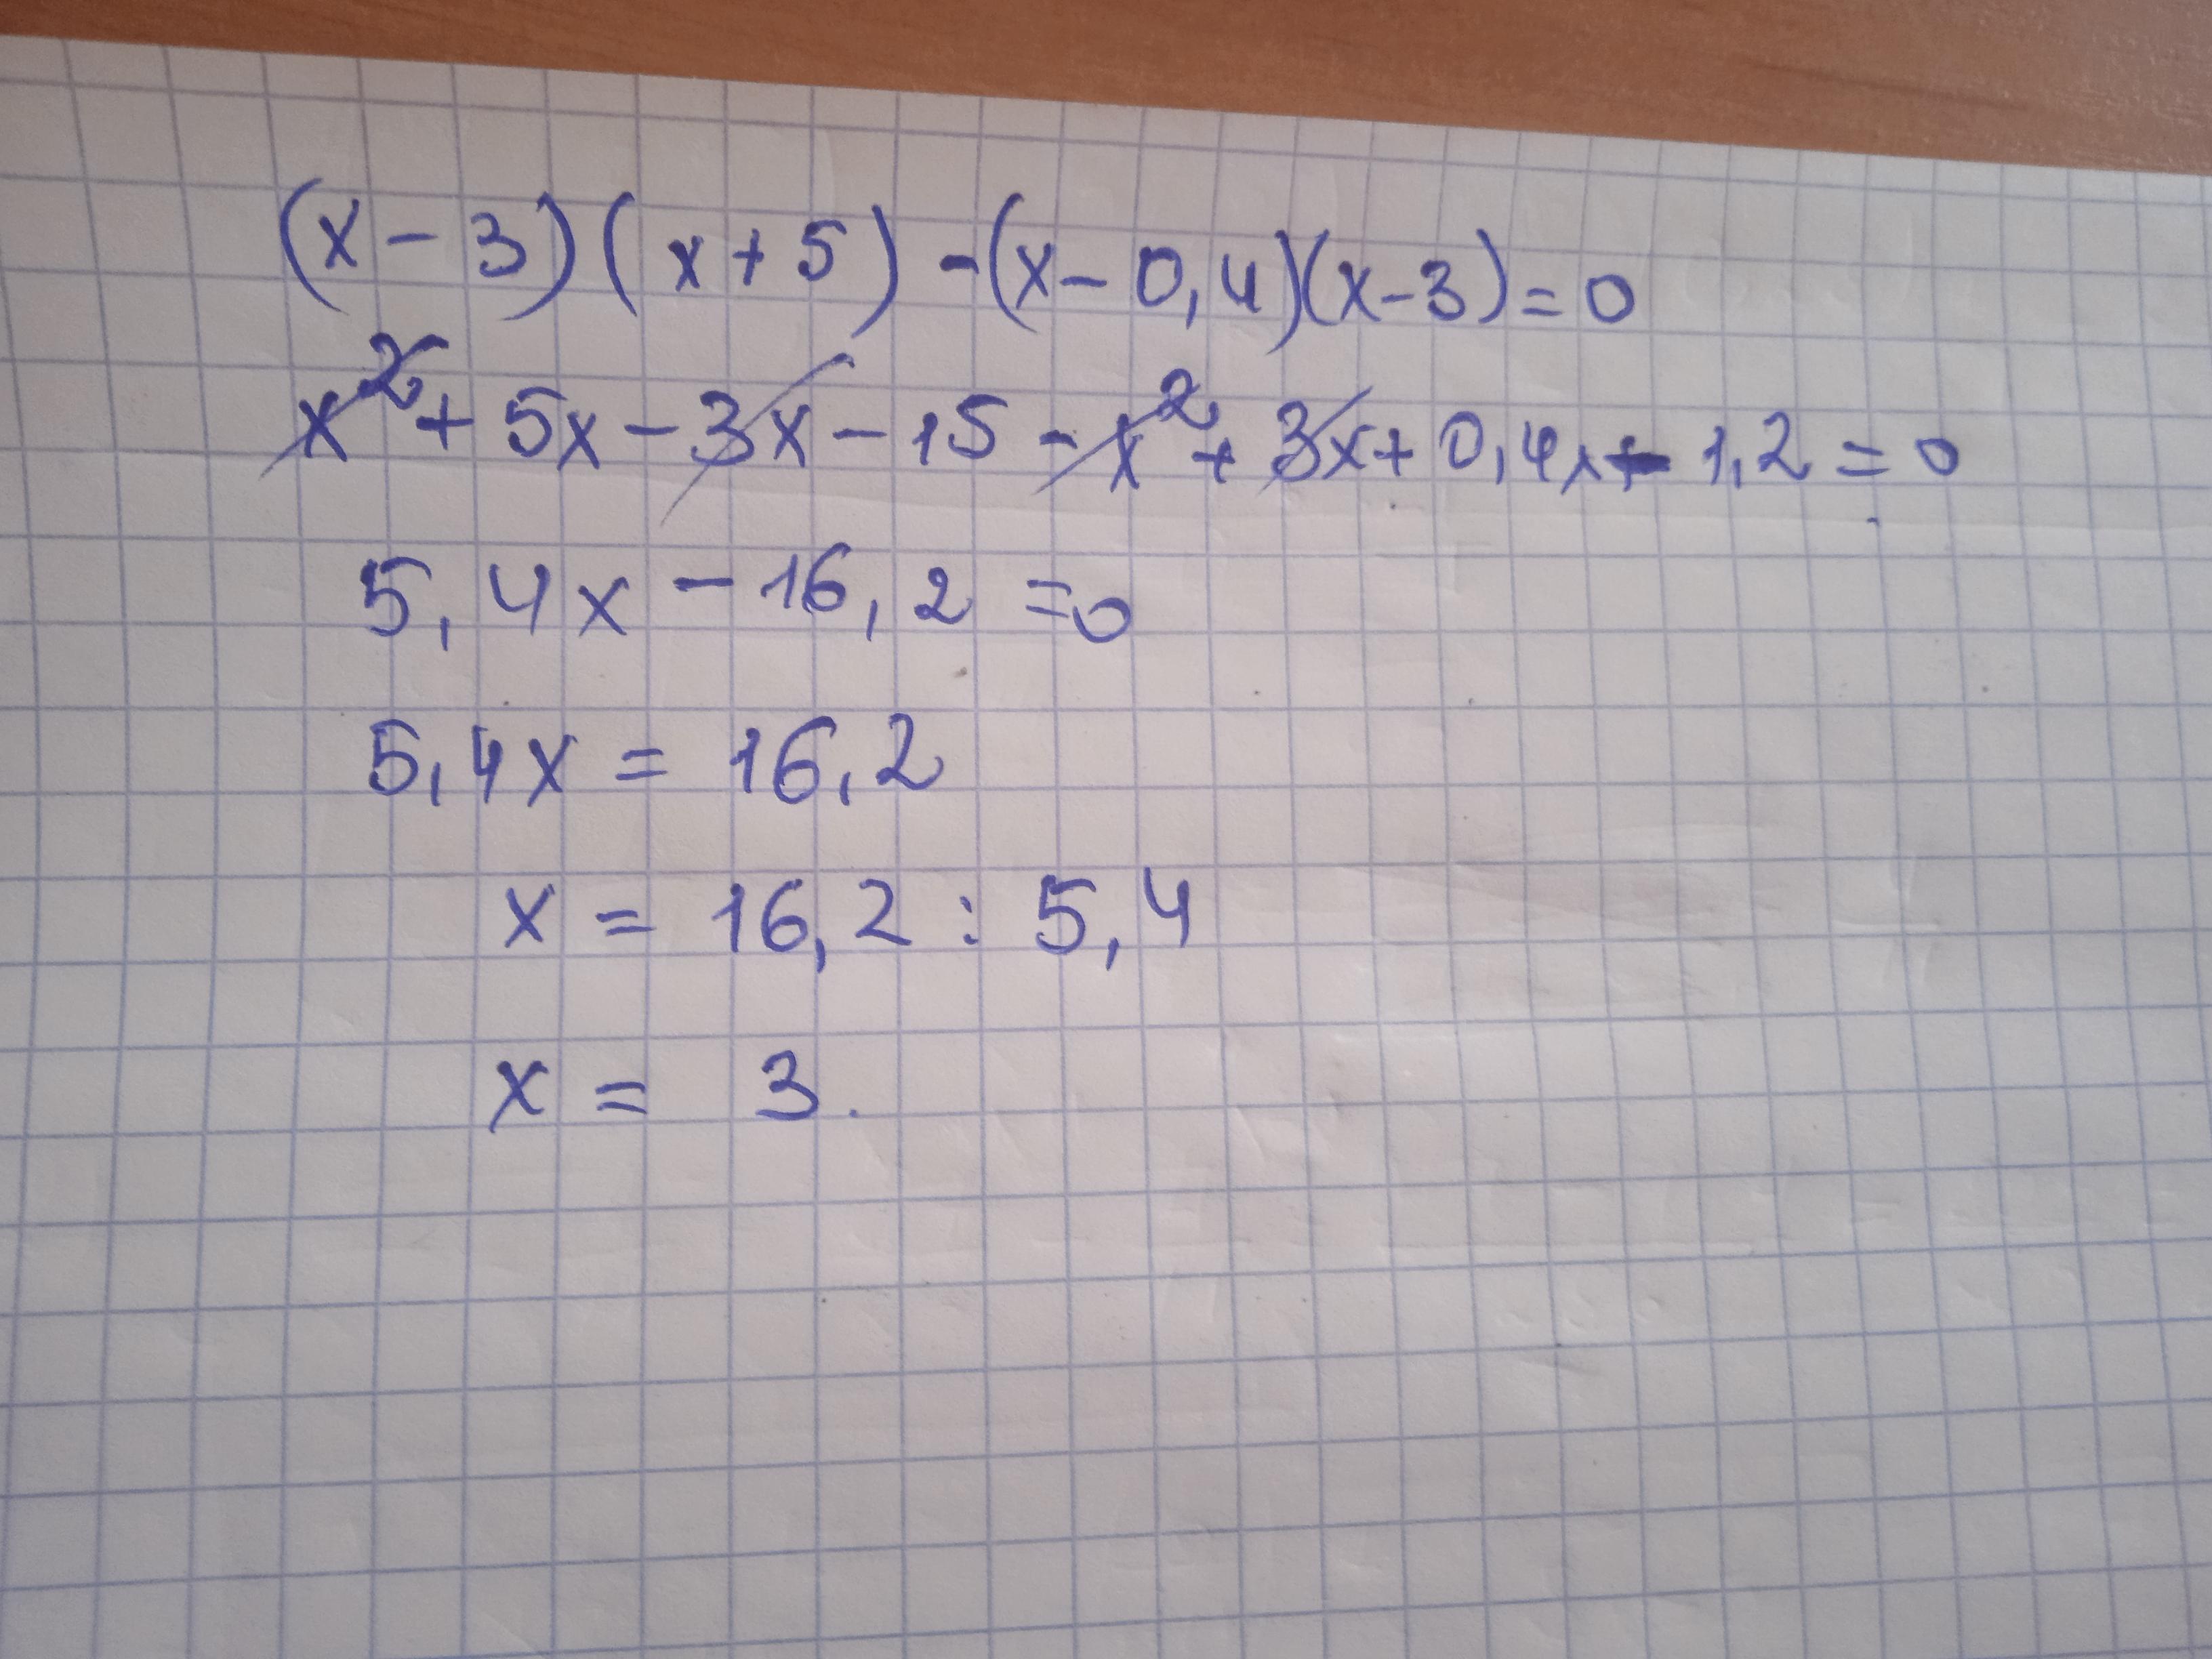 (x - 3)(x + 5) - (x - 0,4)(x - 3) = 0
x² + 5x - 3x - 15 - x² + 3x + 0,4x - 1,2 = 0
5,4x - 16,2 = 0
5,4x = 16,2
x = 16,2 : 5,4
x = 3.